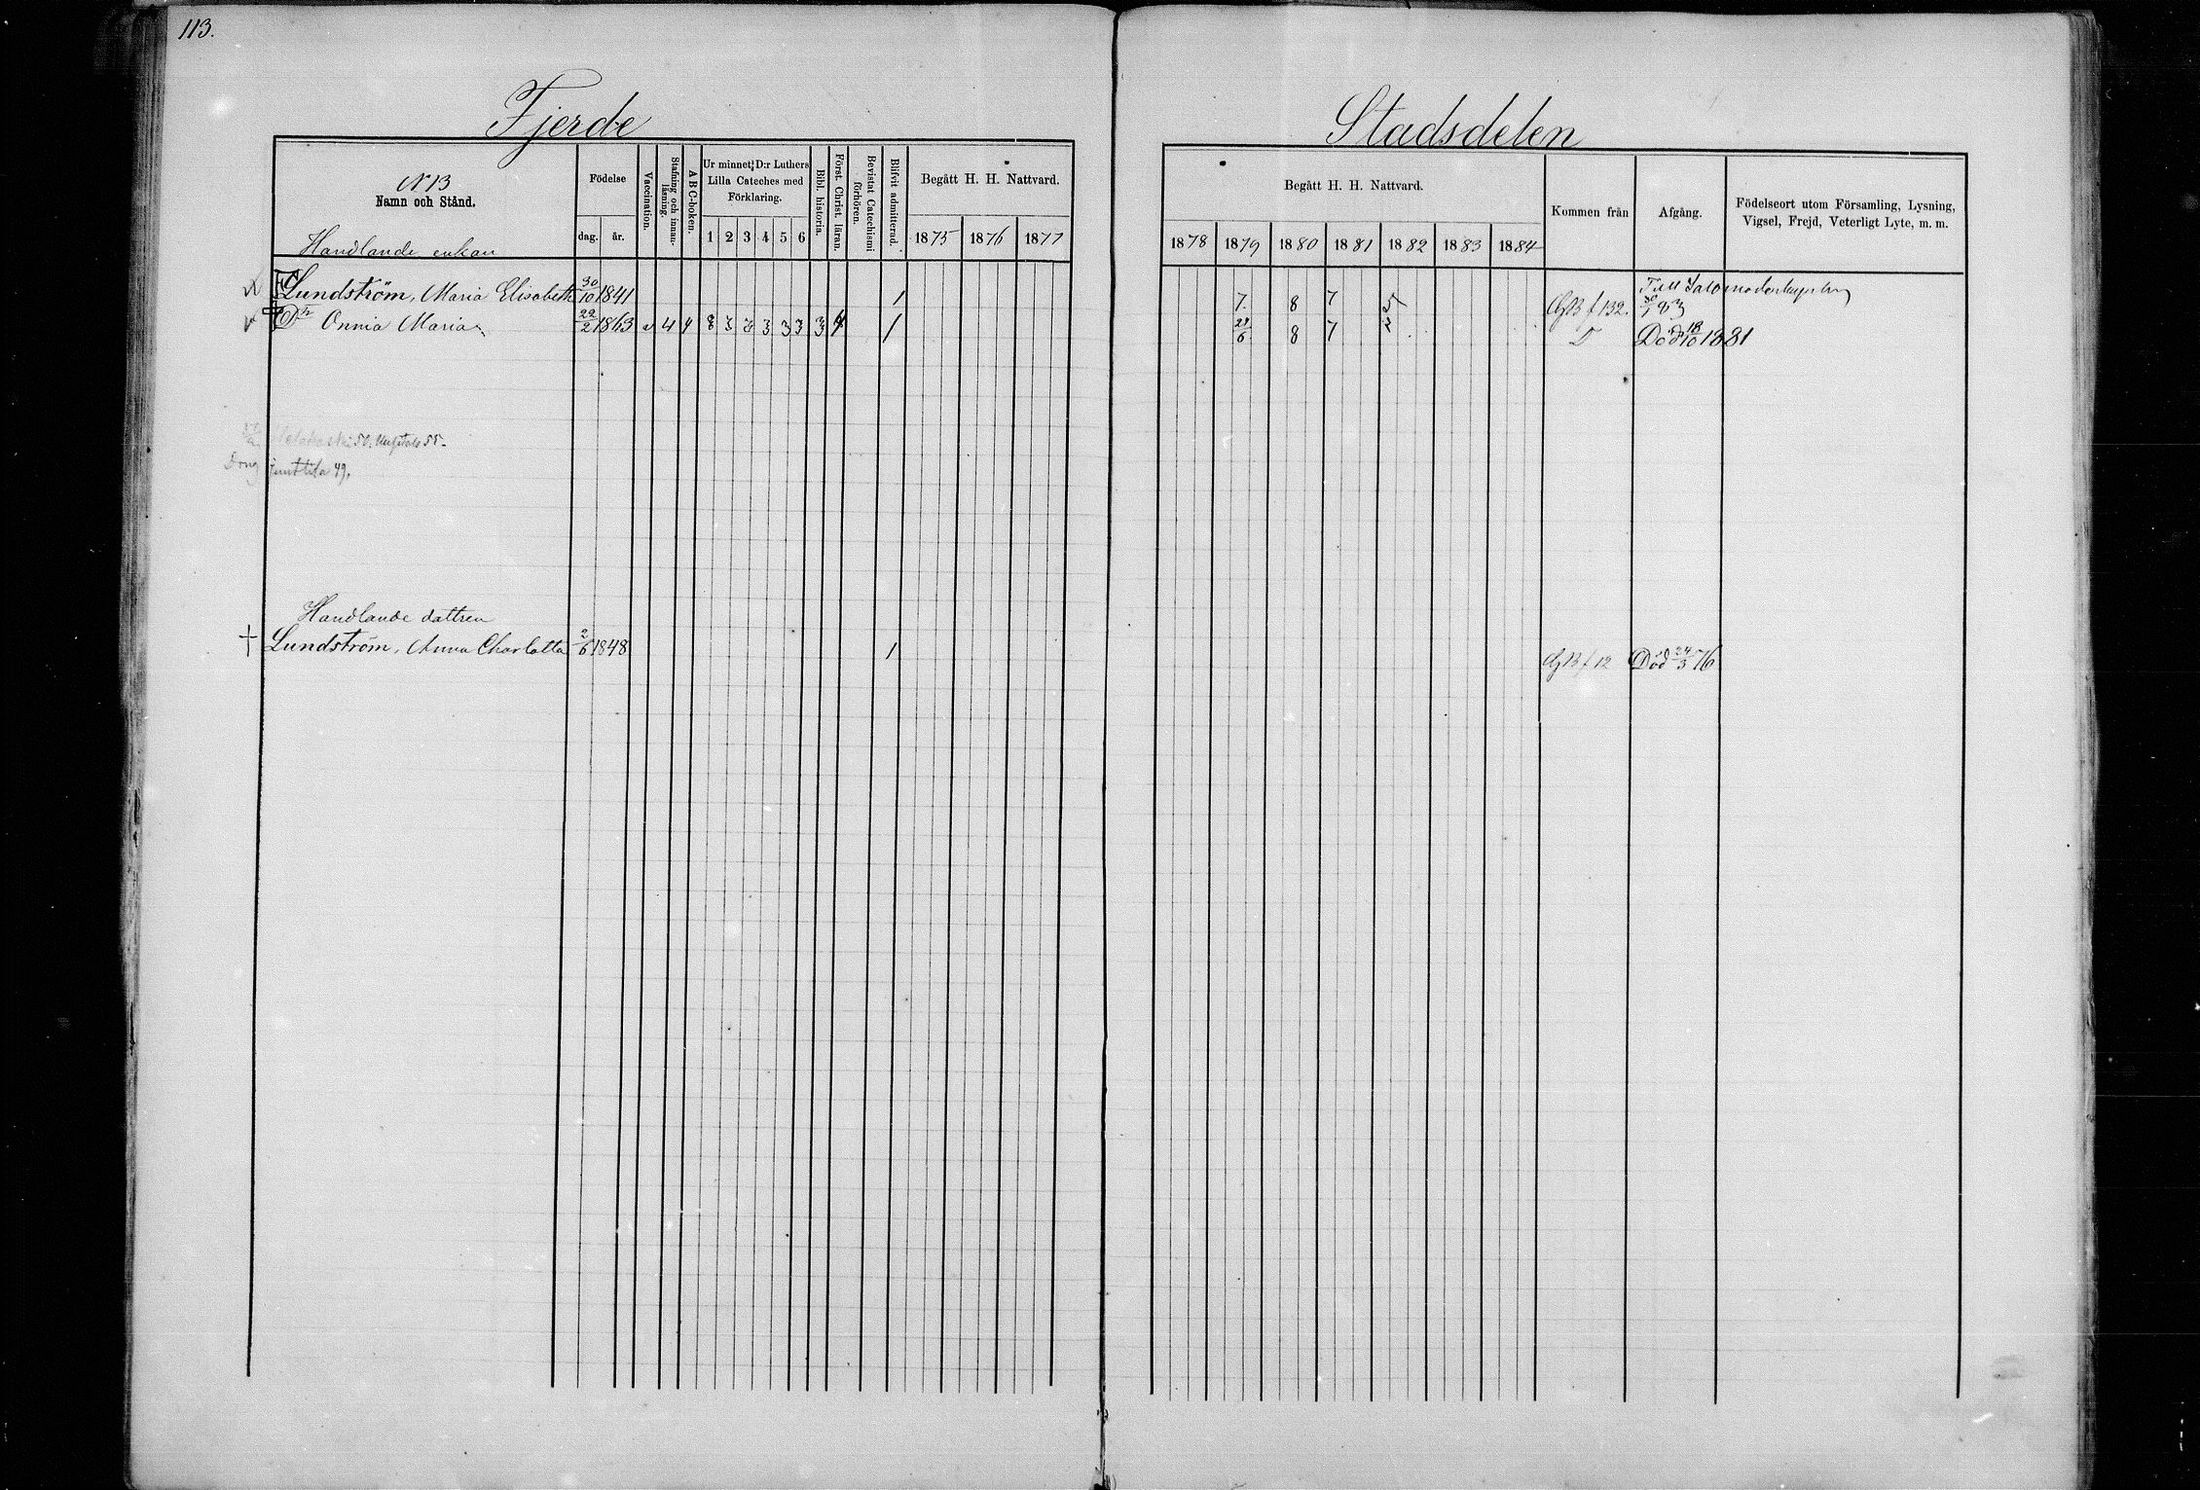 113.
Fjerde Stadsdelen
N 13
Namn och Stånd.
Födelse
dag. år.
Vaccination.
Stafning och innan-läsning.
ABC-boken.
Ur minnet D:r Luthers
Lilla Cateches med
Förklaring.
1 2 3 4 5 6
Bibl. historia.
Först. Christ. läran.
Bevistat Catechismi förhören.
Blifvit admitterad.
Begått H. H. Nattvard.
1875 1876 1877
Begått H. H. Nattvard.
1878 1879 1880 1881 1882 1883 1884
Kommen från
Afgång.
Födelseort utom Församling, Lysning,
Vigsel, Frejd, Veterligt Lyte, m. m.
Handlande enkan
Lundström, Maria Elisabeth 30/10 1841 / 7. 8 7 f 132. Till Salo moderkyrka 83
Dr Onnia Maria 22/2 1863 v 4 4 8 3 3 3 3 3 3 4 / 8 7 D Död 18/10 1881
50. 55.
Junttila 49.
Handlande dottren
† Lundström, Anna Charlotta 2/6 1848 / f 12 Död 24/3 76